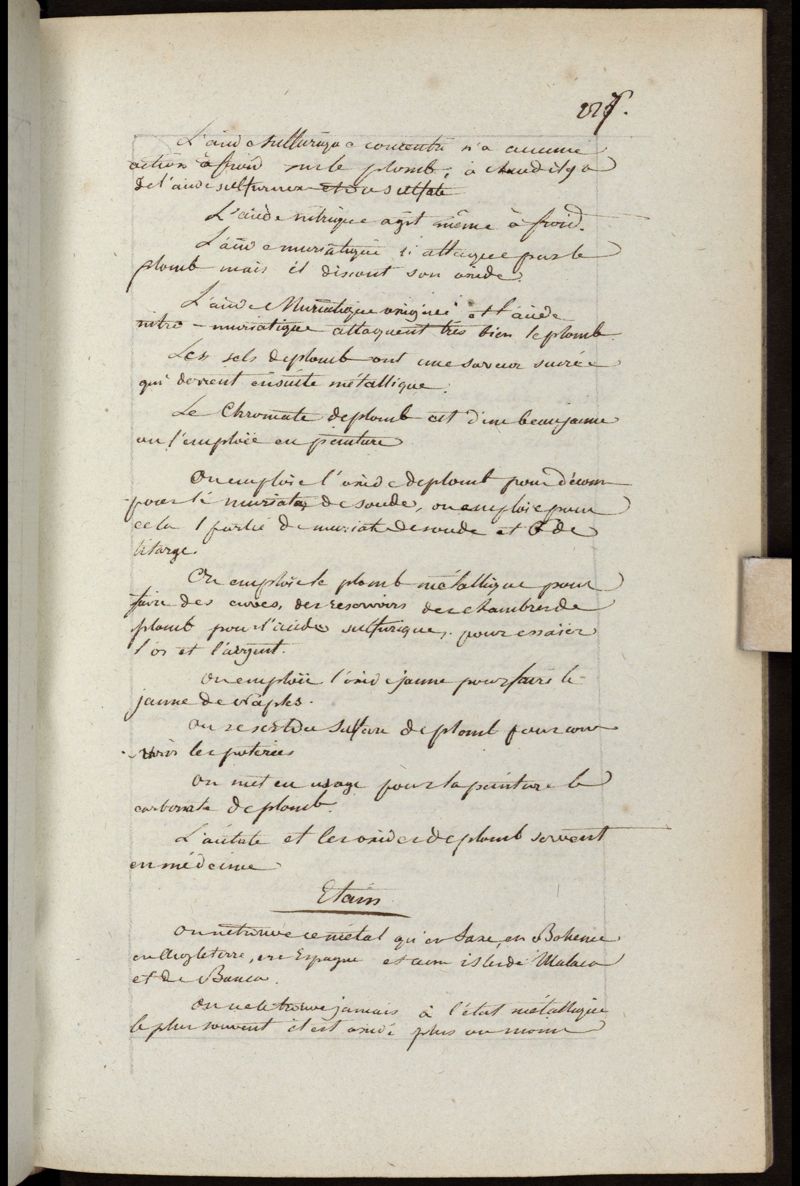 L'acide sulfurique concentré n'a aucune
action à froid sur le plomb, à chaud il y a
de l'acide sulfureux et du sulfate
L'acide nitrique agit même à froid.
L'acide muriatique n'attaque pas le
plomb mais il dissout son oxide.
L'acide Muriatique oxigéné et l'acide
nitro-muriatique attaquent très bien le plomb.
Les sels de plomb ont une saveur sucrée
qui devient ensuite métallique.
Le Chromate de plomb est d'un beau jaune
on l'emploie en peinture
On emploie l'oxide de plomb pour décom-
poser le muriate de soude, on emploie pour
cela 1 partie de muriate de soude et de
litarge.
On emploie le plomb métallique pour
faire des cuves, des reservoirs des chambres de
plomb pour l'acide sulfurique, pour essaier
l'or et l'argent.
On emploie l'oxide jaune pour faire le
jaune de Naples.
On se sert du sulfure de plomb pour cou-
vrir les poteries
On met en usage pour la peinture le
carbonate de plomb.
L'acétate et les oxides de plomb servent
en médecine
Etain
On ne trouve ce métal qu'en Saxe, en Boheme
en Angleterre, en Espagne et aux isles de Malaca
et de Banca.
On ne le trouve jamais à l'état métallique
le plus souvent il est oxidé plus ou moins